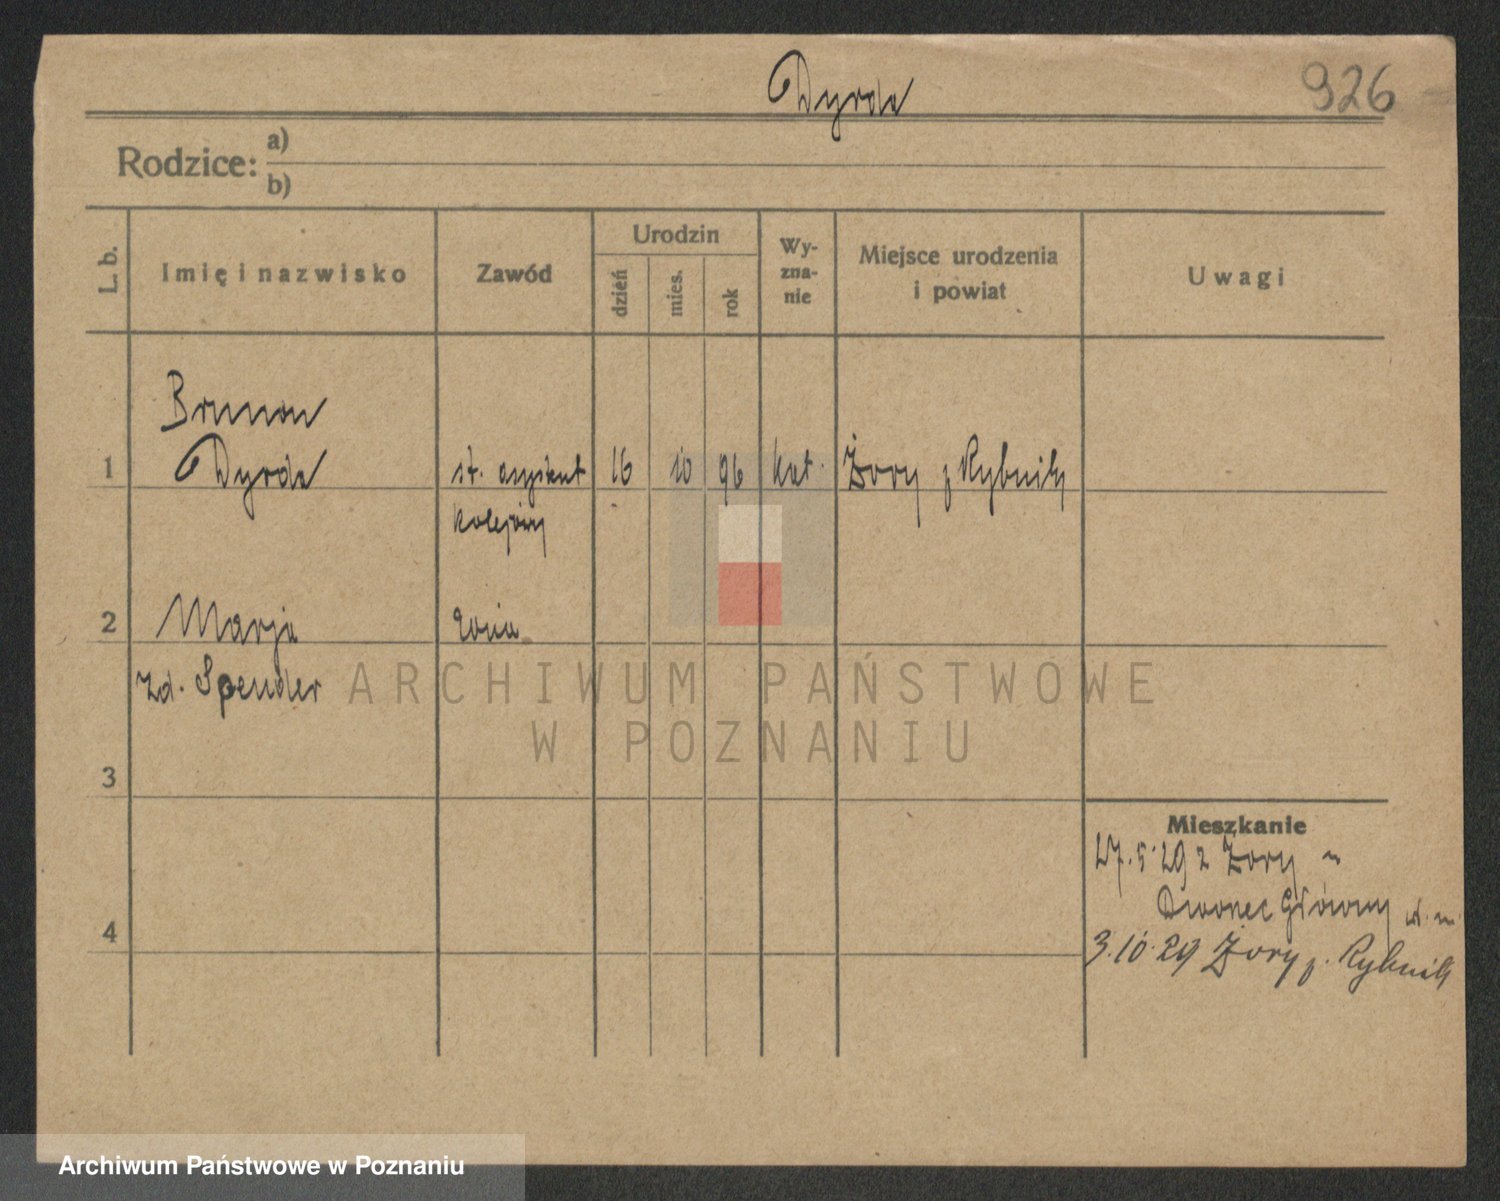 Dyrda
926
Rodzice: a)
b)
L. b.
Imię i nazwisko
Zawód
Urodzin
dzień
mies.
rok
Wy-
zna-
nie
Miejsce urodzenia
i powiat
Uwagi
Brunon
1 Dyrda st. asystent 16 10 96 kat. Żory p Rybnik
kolejowy
2 Marja żona
zd. Spender
ARCHIWUM PAŃSTWOWE
W POZNANIU
3
Mieszkanie
27.5.29 z Żory
Dworzec Główny
4
3.10.29 Żory p. Rybnik
Archiwum Państwowe w Poznaniu